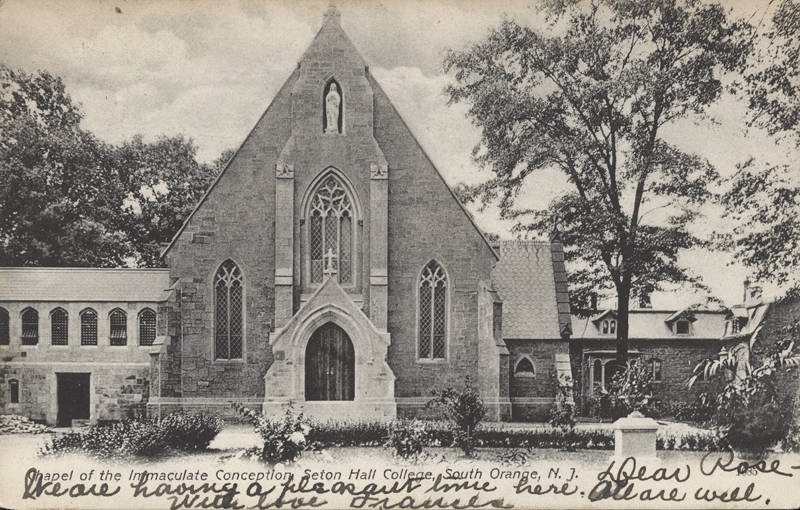 Chapel of the Immaculate Conception, Seton Hall College, South Orange, N. J.
Dear Rose-
We are having a pleasant time here. All are well.
With love Frances